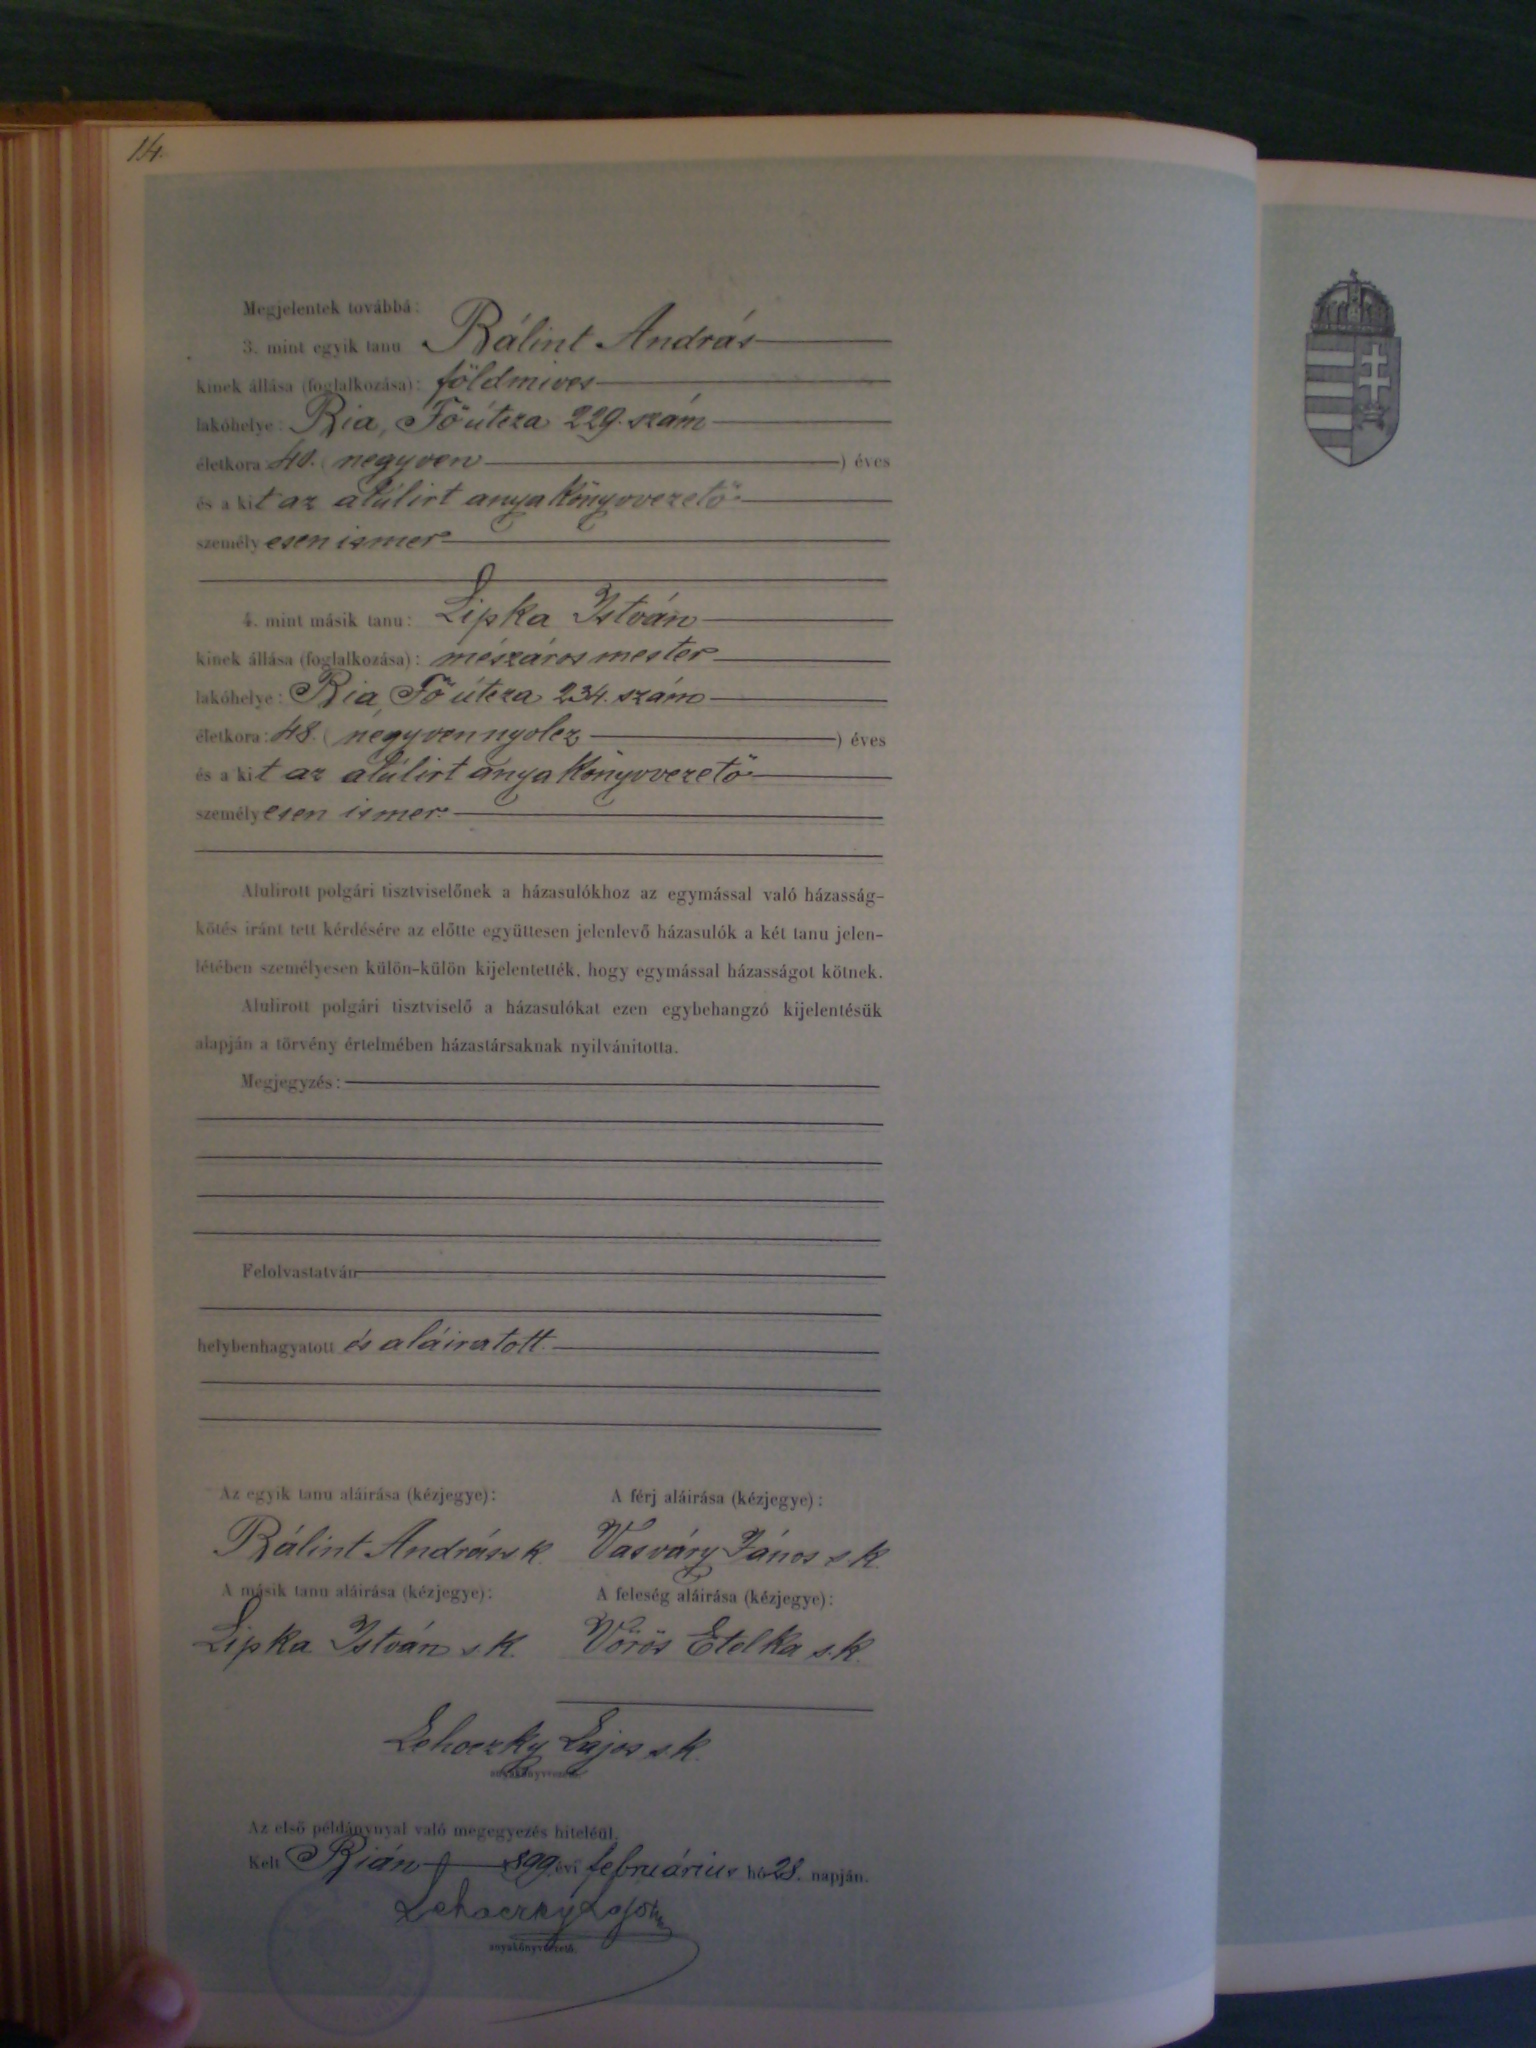 14.
Megjelentek továbbá:
3. mint egyik tanu Bálint András
kinek állása (foglalkozása): földmives
lakóhelye: Bia, Fő útcza 229. szám
életkora: 40. (negyven) éves
és a kit az alúlirt anyakönyvvezető
személyesen ismer
4. mint másik tanu: Lipka István
kinek állása (foglalkozása): mészáros mester
lakóhelye: Bia, Fő útcza 234. szám
életkora: 48. (negyvennyolcz) éves
és a kit az alúlirt anyakönyvvezető
személyesen ismer.
Alulirott polgári tisztviselőnek a házasulókhoz az egymással való házasság-
kötés iránt tett kérdésére az előtte együttesen jelenlevő házasulók a két tanu jelen-
létében személyesen külön-külön kijelentették, hogy egymással házasságot kötnek.
Alulirott polgári tisztviselő a házasulókat ezen egybehangzó kijelentésük
alapján a törvény értelmében házastársaknak nyilvánitotta.
Megjegyzés:
Felolvastatván
helybenhagyatott és aláiratott.
Az egyik tanu aláirása (kézjegye): A férj aláirása (kézjegye):
Bálint András s k Vasváry János s k.
A másik tanu aláirása (kézjegye): A feleség aláirása (kézjegye):
Lipka István s k. Vörös Etelka s. k.
Lehoczky Lajos s. k.
anyakönyvvezető.
Az első példánynyal való megegyezés hiteléül.
Kelt Bián 1899. évi februárius hó 28. napján.
Lehoczky Lajos
anyakönyvvezető.